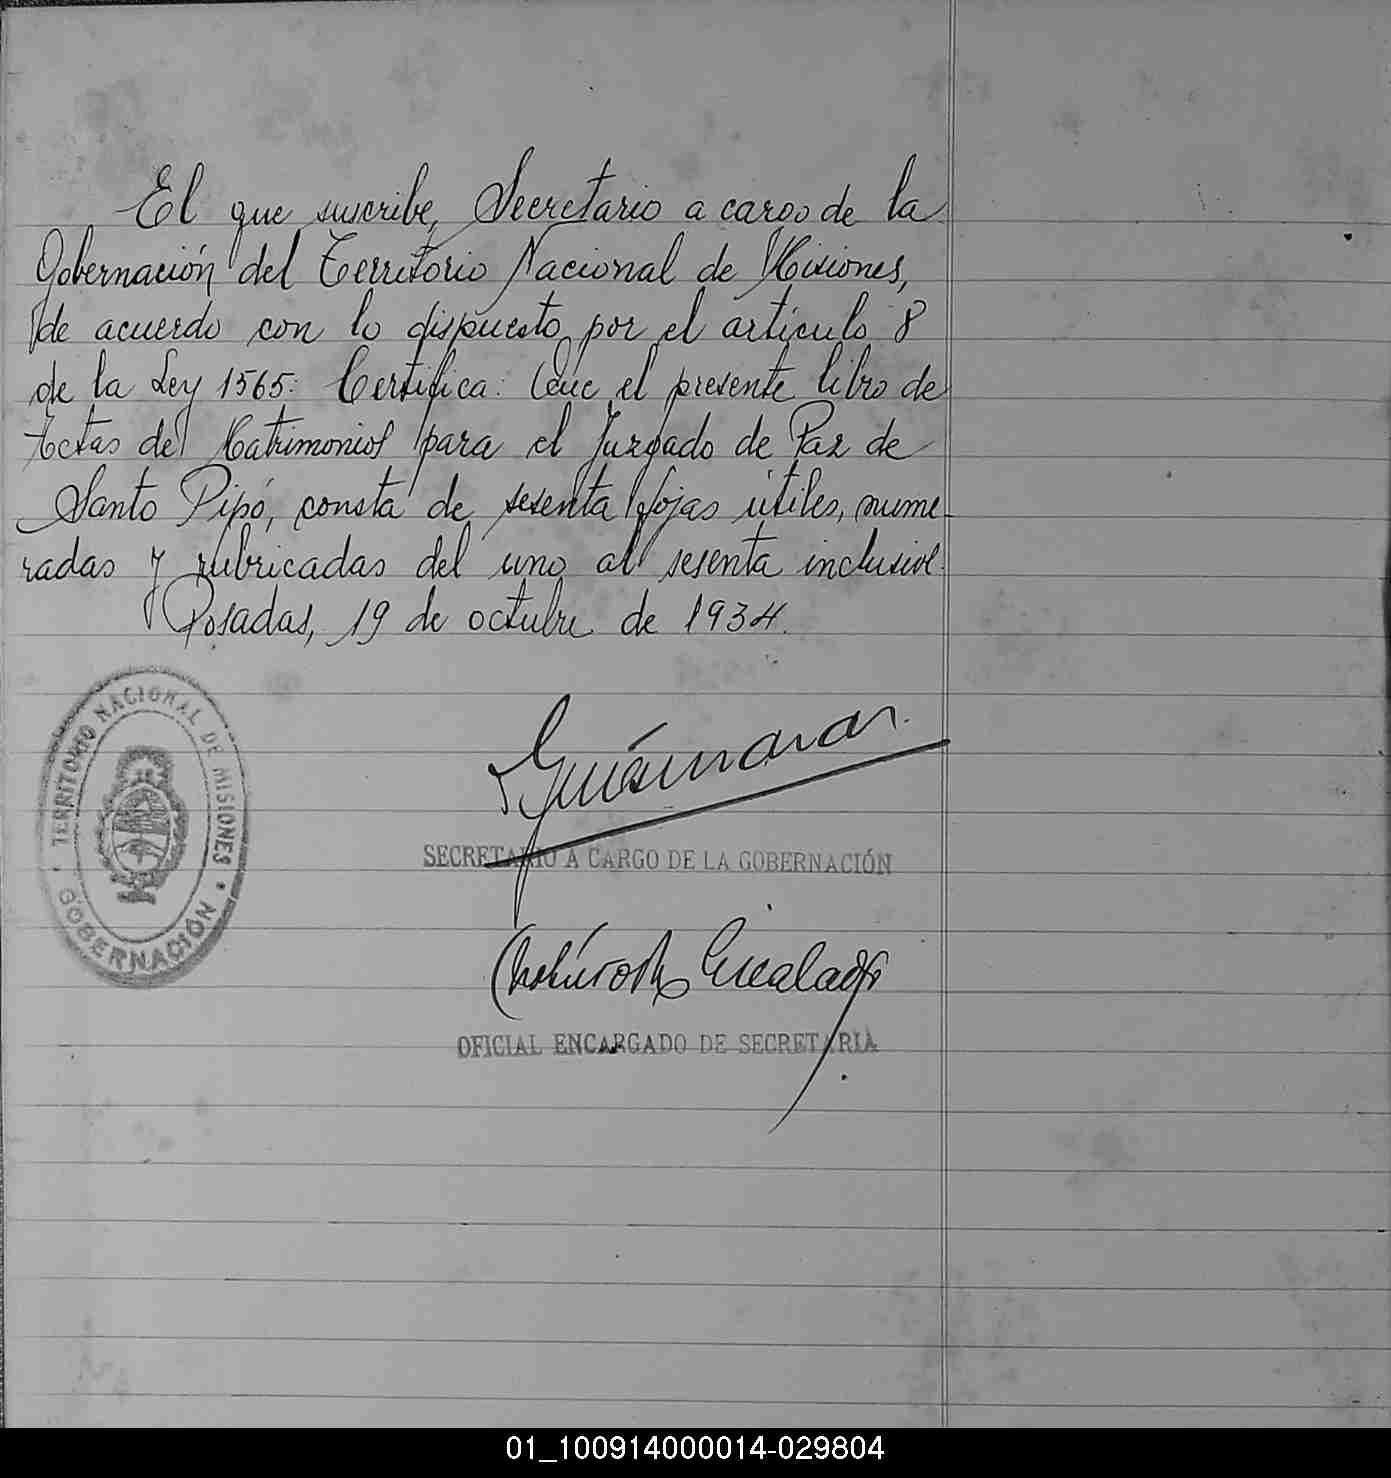 El que suscribe, Secretario a cargo de la
Gobernación del Territorio Nacional de Misiones,
de acuerdo con lo dispuesto por el artículo 8
de la Ley 1565: Certifica: Que el presente libro de
Actas de Matrimonios para el Juzgado de Paz de
Santo Pipó, consta de sesenta fojas útiles, nume-
radas y rubricadas del uno al sesenta inclusive.
Posadas, 19 de octubre de 1934.
TERRITORIO NACIONAL DE MISIONES
GOBERNACIÓN
SECRETARIO A CARGO DE LA GOBERNACIÓN
OFICIAL ENCARGADO DE SECRETARIA
01_100914000014-029804